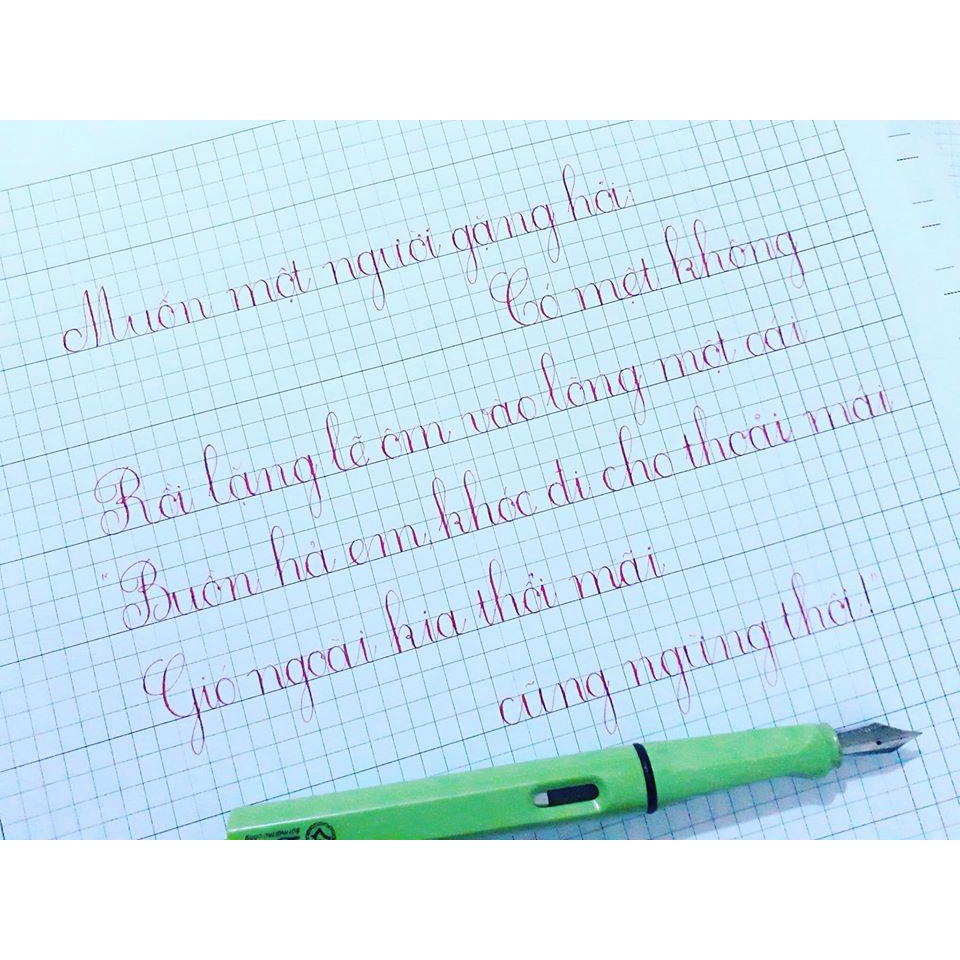 Muốn một người gặng hỏi
Có mệt không
Rồi lặng lẽ ôm vào lòng một cái
"Buồn hả em, khóc đi cho thoải mái
Gió ngoài kia thổi mãi
cũng ngừng thôi!"